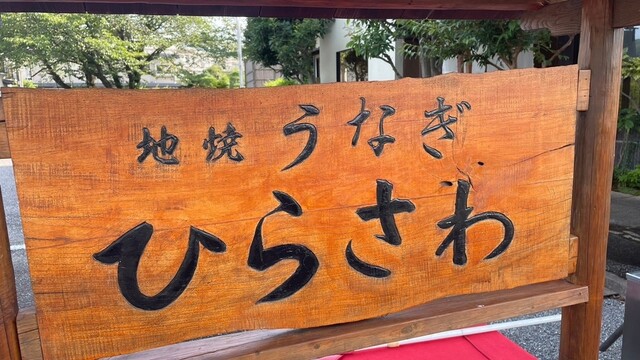 地焼うなぎ
ひらさわ